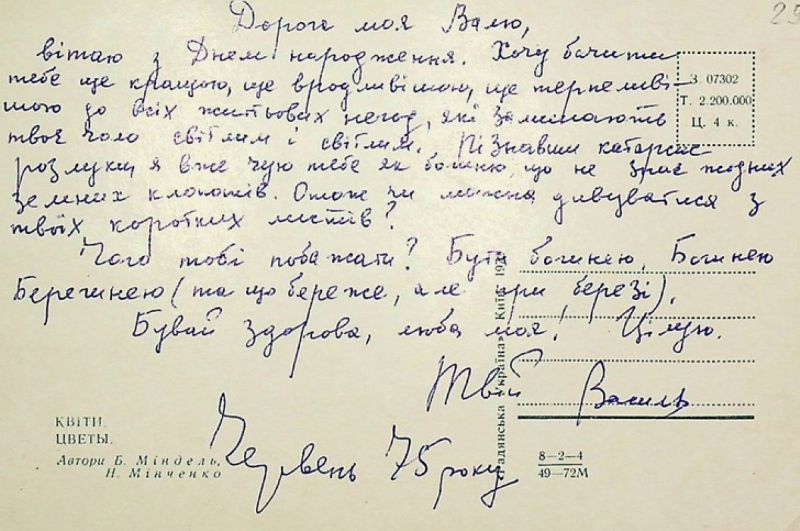 25
Дорога моя Валю,
вітаю з Днем народження. Хочу бачити
тебе ще кращою, ще вродливішою, ще терпеливі-
шою до всіх життьових негод, які залишають
твоє чоло світлим і світлим. Пізнавши катарсис
розлуки я вже чую тебе як богиню, що не знає жодних
земних клопотів. Отож чи можна дивуватися з
твоїх коротких листів?
Чого тобі побажати? Бути богинею. Богинею
Берегинею (та що береже, але при березі).
Бувай здорова, люба моя! Цілую.
Твій Василь
Червень 75 року
З. 07302
Т. 2.200.000
Ц. 4 к.
КВІТИ.
ЦВЕТЫ.
Автори Б. Міндель,
Н. Мінченко
«Радянська Україна» Київ
8—2—4
49—72М